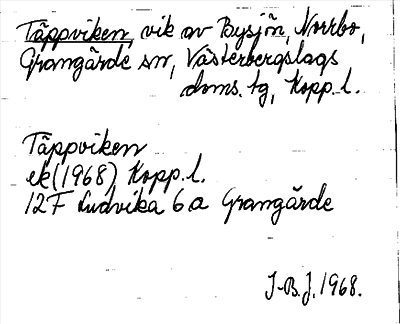 Täppviken, vik av Bysjön, Norrbo,
Grangärde sn, Västerbergslags
doms. tg, Kopp. l.
Täppviken
ek (1968) Kopp. l.
12F Ludvika 6a Grangärde
J-B.J. 1968.